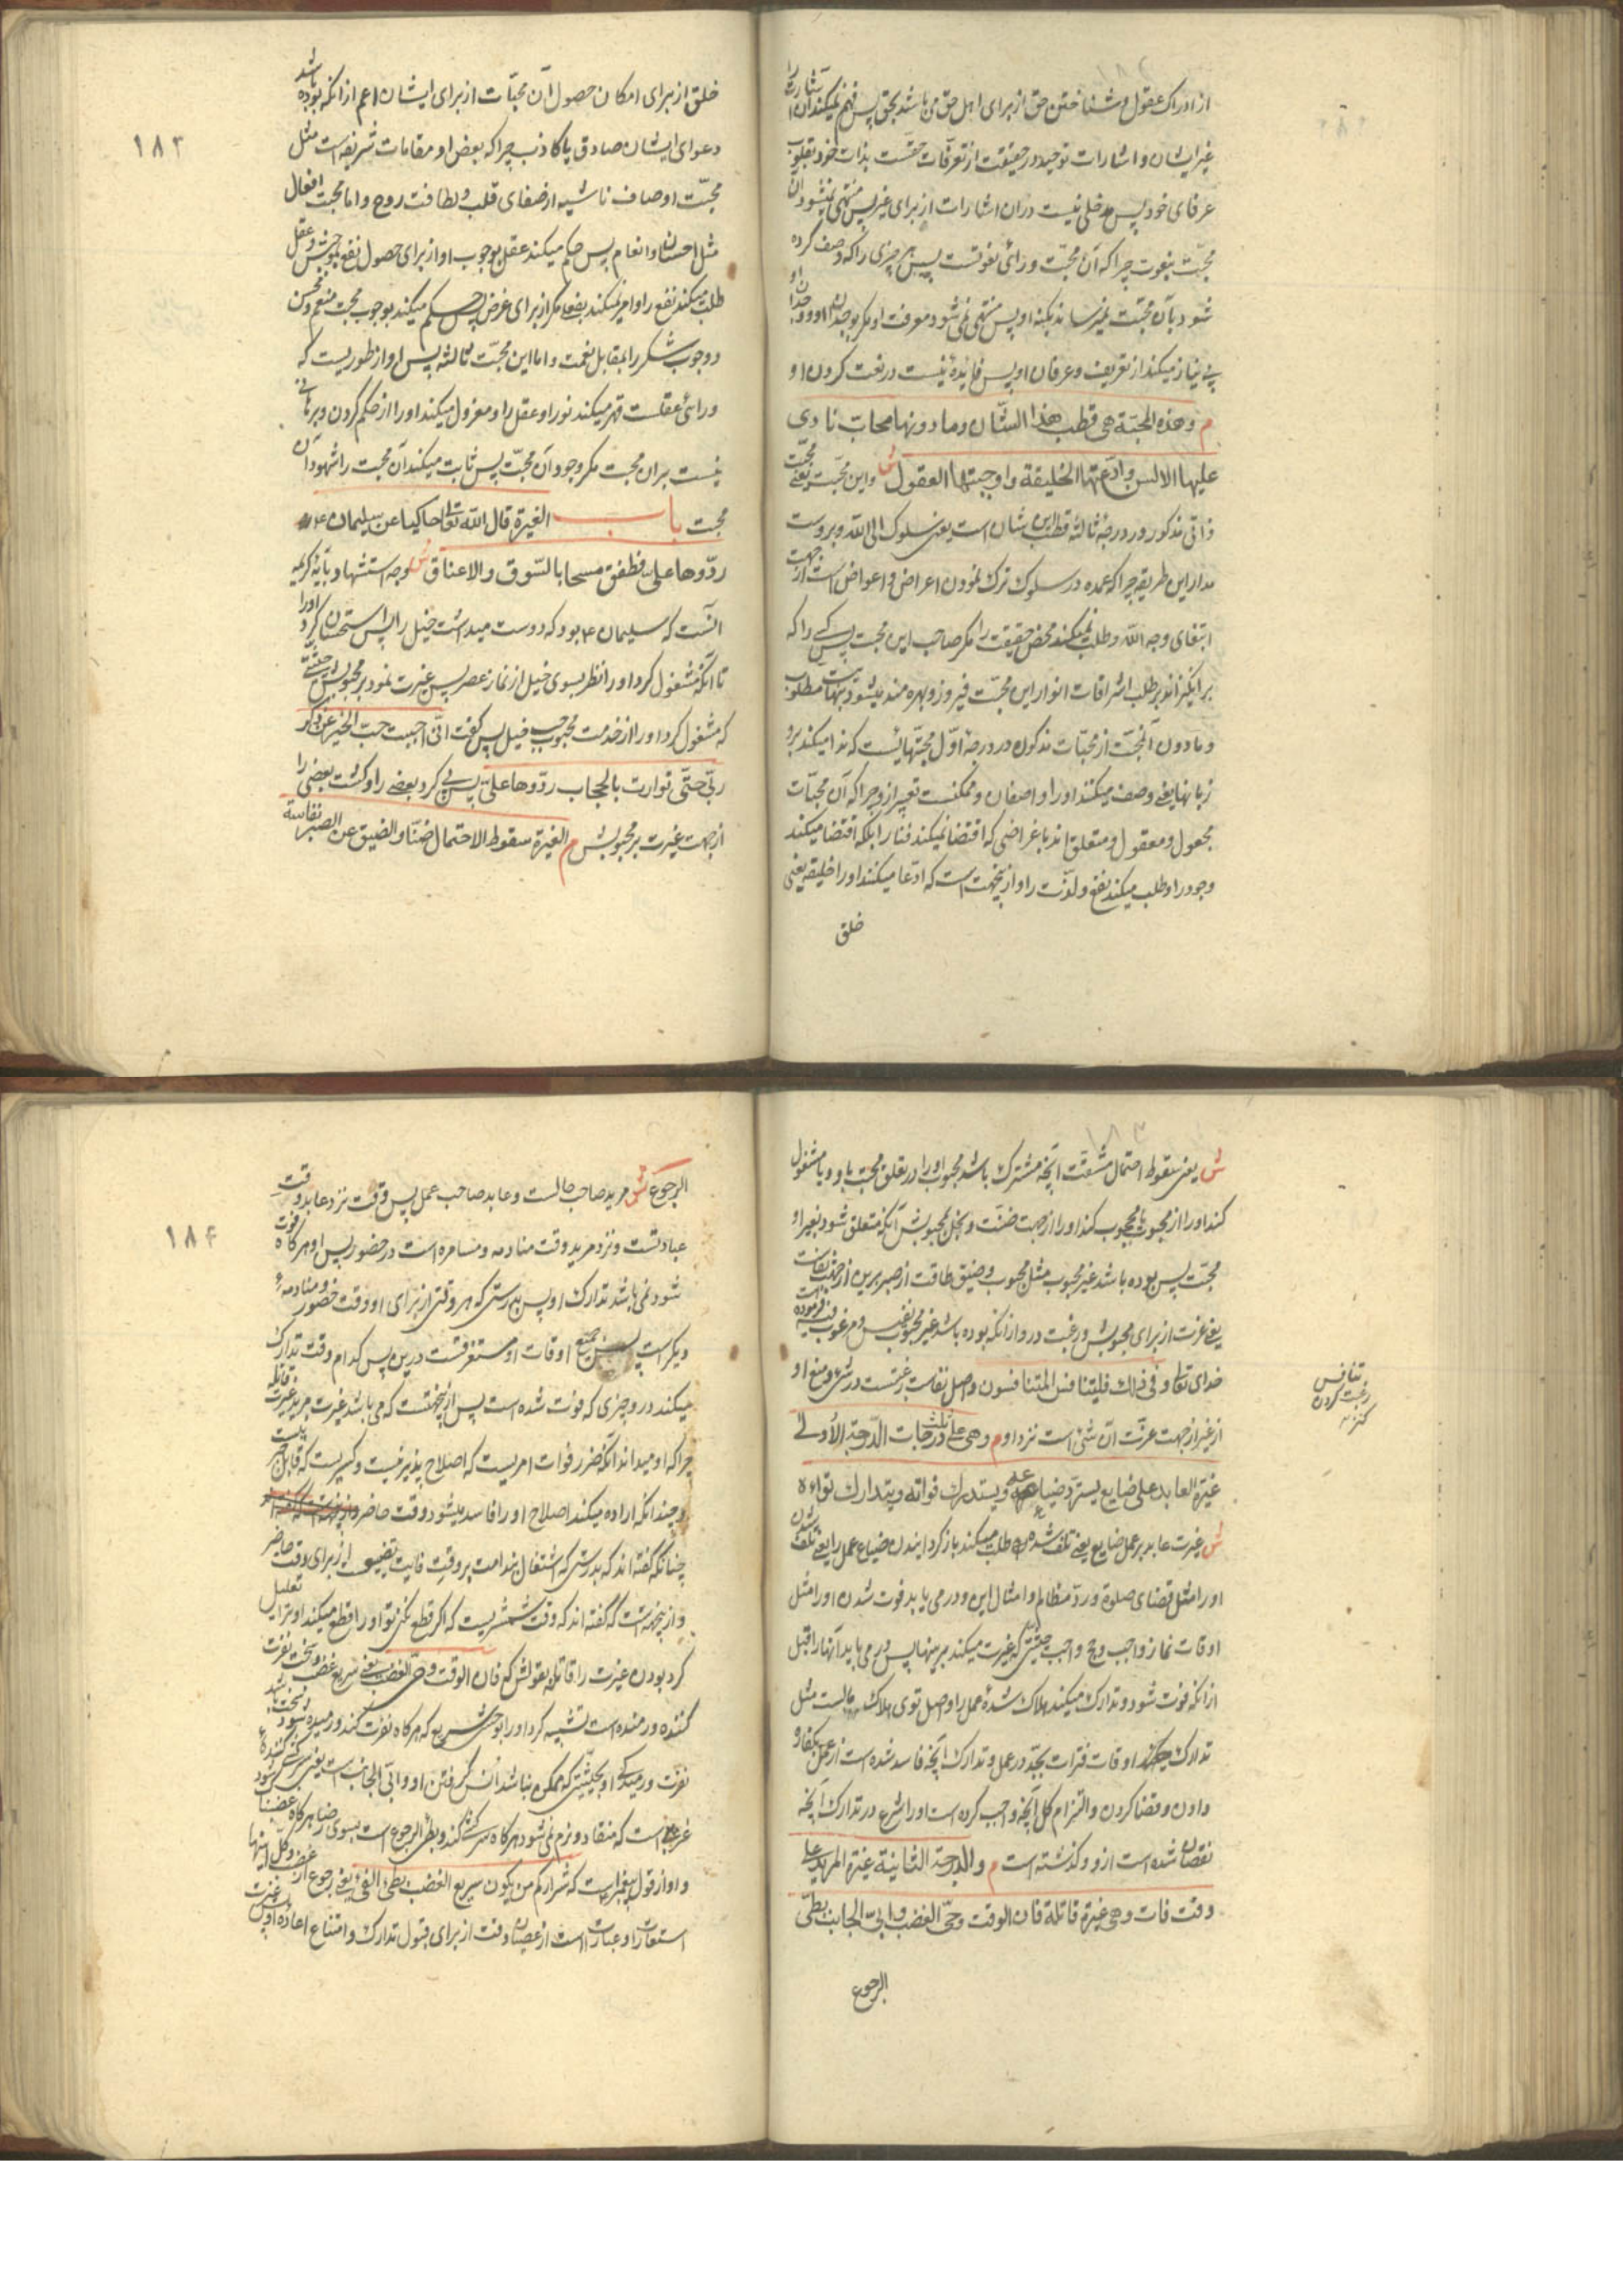 از ادراک عقول و شناختن حق از برای اهل حق می باشد بحق پس فهم نمیکند آن اشارت را
غیر ایشان و اشارات توحید در حقیقت از تعرفات حقست بذات خود بقلوب
عرفای خود پس مدخلی نیست در آن اشارات از برای غیر پس منتهی نمیشود آن
محبّت بنعوت چرا که آن محبّت ورای نعوتست پس هر چیزی را که وصف کرده
شود بآن محبّت نمیرساند بکنه او پس منتهی نمی شود معرفت او مگر بوجدان او و وجدان او
بی نیاز میکند از تعریف و عرفان او پس فایده نیست در نعت کردن او
م وهذه المحبّة هی قطب هذا الشّان وما دونها محابّ نادی
علیها الالسن وادّعتها الخلیقة واوجبتها العقول ش و این محبّت یعنی محبّت
ذاتی مذکور در درجهٔ ثالثه قطب این شان است یعنی سلوک الی الله و بروست
مدار این طریقه چرا که عمده در سلوک ترک نمودن اعراض و اعواض است از جهت
ابتغای وجه الله و طلب نمیکند محض حقیقت را مگر صاحب این محبت پس کسی را که
برانگیزاند بر طلب اشراقات انوار این محبّت فیروز و بهره مند میشود بنهایت مطلوب
و ما دون آن محبّت از محبّات مذکوره در درجهٔ اوّل محبّتهائیست که ندا میکند برو
زبانها یعنی وصف میکنند او را واصفان و ممکنست تعبیر ازو چرا که آن محبّات
مجعول و معقول و متعلق اند باغراضی که اقتضا نمیکند فنا را بلکه اقتضا میکند
وجود را و طلب میکند نفع و لذّت را و ازینجهت است که ادّعا میکنند او را خلیقه یعنی
خلق
۱۸۳
خلق از برای امکان حصول آن محبّات از برای ایشان اعم از آنکه بوده باشد
دعوای ایشان صادق یا کاذب چرا که بعض او مقامات شریفه است مثل
محبّت اوصاف ناشیه از صفای قلب و لطافت روح و اما محبت افعال
مثل احسان و انعام پس حکم میکند عقل بوجوب او از برای حصول نفع و عقل
طلب میکند نفع را و امر نمیکند بفعل مگر از برای غرض پس حکم میکند بوجوب محبت منعم و محسن
و وجوب شکر را بمقابل نعمت و اما این محبّت ثالثه پس او از طوریست که
ورای عقلست قهر میکند نور او عقل را و معزول میکند او را از حکم کردن و برهانی
نیست بر آن محبت مگر وجود آن محبّت پس ثابت میکند آن محبت را شهود آن
محبت باب الغیرة قال الله تعالی حاکیا عن سلیمان ع
ردّوها علیّ فطفق مسحا بالسّوق والاعناق ش وجه استشهاد بآیهٔ کریمه
آنست که سلیمان ع بود که دوست میداشت خیل را پس استحسان کرد او را
تا آنکه مشغول کرد او را نظر بسوی خیل از نماز عصر پس غیرت نمود بر محبوبش از حیثیّتی
که مشغول کرد او را از خدمت محبوب حب خیل پس گفت انّی احببت حبّ الخیر عن ذکر
ربّی حتّی توارت بالحجاب ردّوها علیّ پس پی کرد بعضی را و کشت بعضی را
از جهت غیرت بر محبوبش م الغیرة سقوط الاحتمال ضنّا والضیق عن الصبر نفاسة
ش یعنی سقوط احتمال مشقّت آنچه مشترک باشد محبوب او را در تعلق محبّت باو و یا مشغول
کند او را از محبوب یا محجوب کند او را از جهت ضنّت و بخل بمحبوبش آنکه متعلق شود بغیر او
محبّت پس بوده باشد غیر محبوب مثل محبوب و ضیق طاقت از صبر برین از جهت نفاست
یعنی عزت از برای محبوبش و رغبت درو از آنکه بوده باشد غیر محبوب نفیس و مرغوب فیه فرموده
خدای تعالی وفی ذلک فلیتنافس المتنافسون و اصل نفاست رغبتست در شئ و منع او
از غیر از جهت عزّت آن شئ است نزد او م وهی علی ثلث درجات الدّرجة الأولی
غیرة العابد علی ضایع یستردّ ضیاعه ویستدرک فواته ویتدارک تواه
ش غیرت عابد بر عمل ضایع یعنی تلف شده که طلب میکند بازگردانیدن ضیاع عمل را یعنی تلف شدن
او را مثل قضای صلوة و ردّ مظالم و امثال این و در می یابد فوت شدن او را مثل
اوقات نماز واجب و حج واجب حیثیّتی که غیرت میکند برینها پس در می یابد آنها را قبل
از آنکه فوت شود و تدارک میکند هلاک شدهٔ عمل را و اصل توی هلاک مالست مثل
تدارک اوقات فترات بجّد در عمل و تدارک آنچه فاسد شده است از عمل بکفاره
دادن و قضا کردن و التزام کل آنچه واجب کرده است او را شرع در تدارک آنچه
نقصان شده است ازو و گذشته است م والدرجة الثانیة غیرة المرید علی
وقت فات وهی غیرة قاتلة فان الوقت وحیّ الغضب وابیّ الجانب بطیّ
الرجوع
تنافس
رغبت کردن
کنز
۱۸۴
الرجوع ش مرید صاحب حالست و عابد صاحب عمل پس وقت نزد عابد وقت
عبادتست و نزد مرید وقت منادمه و مسامره است در حضور پس او هرگاه فوت
شود نمی باشد تدارک او پس بدرستی که هر وقتی از برای او وقت حضور و منادمهٔ
دیگر است پس جمیع اوقات او مستغرقست درین پس کدام وقت تدارک
میکند درو چیزی که فوت شده است پس ازینجهتست که می باشد غیرت مرید غیرت قاتله
چرا که او میداند آنکه ضرر فوات امریست که اصلاح پذیر نیست و کسریست که قابل جبر نیست
و چندانکه اراده میکند اصلاح او را فاسد میشود وقت حاضر
چنانکه گفته اند که بدرستی که اشتغال بندامت بر وقت فایت تضییع از برای وقت حاضر
و ازینجهت است که گفته اند که وقت شمشیریست که اگر قطع نکنی تو او را قطع میکند او ترا تعلیل
کرد بودن غیرت را قاتله بقولش که فان الوقت وحیّ الغضب یعنی سریع غضب و سخت نفرت
کننده و رمنده است تشبیه کرد او را بوحش سریع که هرگاه نفرت کند و رمیده شود سخت باشد
نفرت و رمیدگی او بحیثیّتی که ممکن نباشد انس گرفتن او وابیّ الجانب است یعنی سرکشی کنندهٔ
غریب است که منقاد و نرم نمی شود هرگاه سرکشی کند وبطئ الرجوع است بسوی رضا هرگاه غضبناک شود
و او از قول پیغمبر است که شرارکم من یکون سریع الغضب بطئ الفئ یعنی رجوع از غضب و کلّ اینها
استعارات و عبارات است از عصیان وقت از برای قبول تدارک و امتناع اعادهٔ او پس غیرت